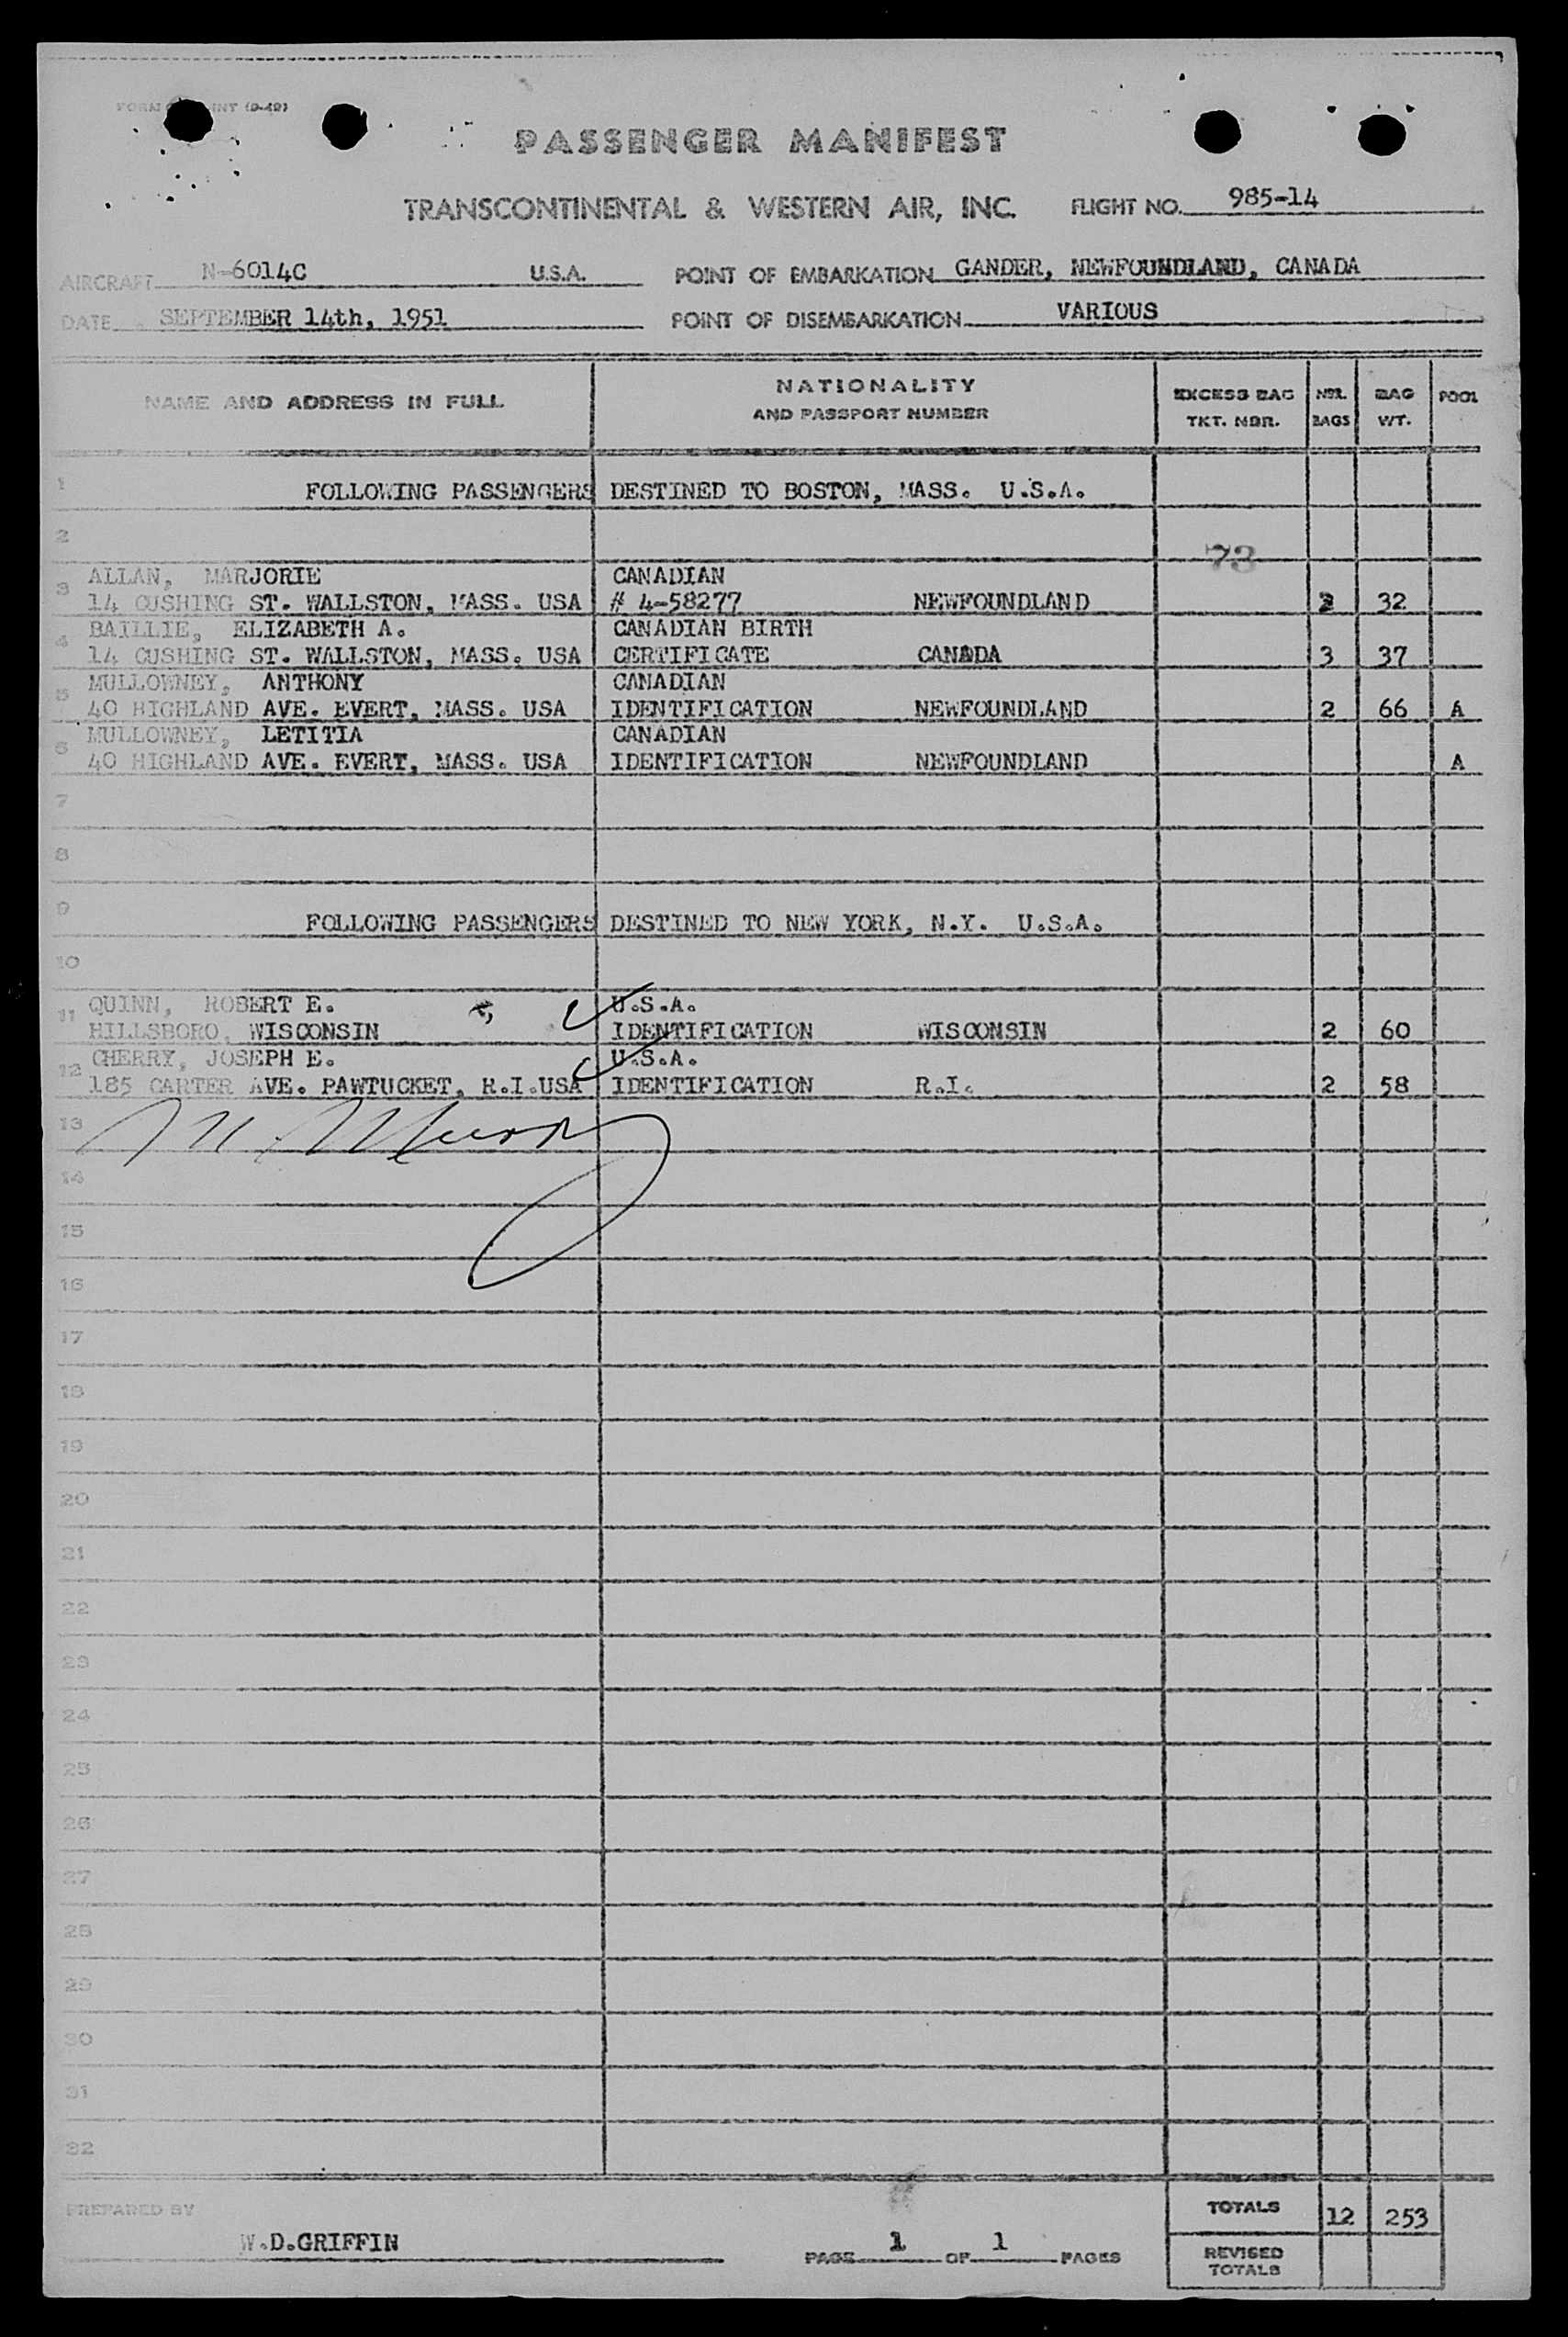 PASSENGER MANIFEST
TRANSCONTINENTAL & WESTERN AIR, INC. FLIGHT NO. 985-14
AIRCRAFT N-6014C U.S.A. POINT OF EMBARKATION GANDER, NEWFOUNDLAND, CANADA
DATE SEPTEMBER 14th, 1951 POINT OF DISEMBARKATION VARIOUS
NAME AND ADDRESS IN FULL NATIONALITY AND PASSPORT NUMBER EXCESS BAG TKT. NBR. NBR. BAGS BAG WT. POOL
1 FOLLOWING PASSENGERS DESTINED TO BOSTON, MASS. U.S.A.
2
73
3 ALLAN, MARJORIE CANADIAN
14 CUSHING ST. WALLSTON, MASS. USA # 4-58277 NEWFOUNDLAND 32
4 BAILLIE, ELIZABETH A. CANADIAN BIRTH
14 CUSHING ST. WALLSTON, MASS. USA CERTIFICATE CANADA 3 37
5 MULLOWNEY, ANTHONY CANADIAN
40 HIGHLAND AVE. EVERT, MASS. USA IDENTIFICATION NEWFOUNDLAND 2 66 A
6 MULLOWNEY, LETITIA CANADIAN
40 HIGHLAND AVE. EVERT, MASS. USA IDENTIFICATION NEWFOUNDLAND A
7
8
9 FOLLOWING PASSENGERS DESTINED TO NEW YORK, N.Y. U.S.A.
10
11 QUINN, ROBERT E. U.S.A.
HILLSBORO, WISCONSIN IDENTIFICATION WISCONSIN 2 60
12 CHERRY, JOSEPH E. U.S.A.
185 CARTER AVE. PAWTUCKET, R.I.USA IDENTIFICATION R.I. 2 58
13
14
15
16
17
18
19
20
21
22
23
24
25
26
27
28
29
30
31
32
PREPARED BY W.D.GRIFFIN PAGE 1 OF 1 PAGES
TOTALS 12 253
REVISED TOTALS